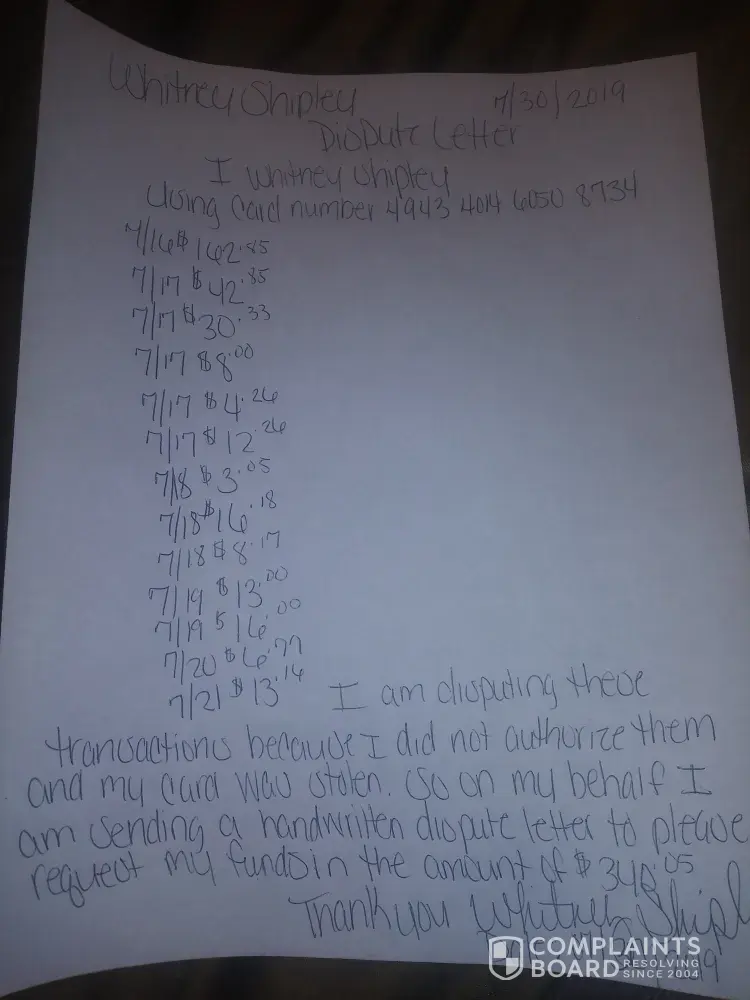 Whitney Shipley 7/30/2019
Dispute Letter
I Whitney Shipley
Using Card number 4943 4014 6050 8734
7/16 $162.85
7/17 $42.85
7/17 $30.33
7/17 $8.00
7/17 $4.26
7/17 $12.26
7/18 $3.05
7/18 $16.18
7/18 $8.17
7/19 $13.00
7/19 $16.00
7/20 $6.77
7/21 $13.16 I am disputing these
transactions because I did not authorize them
and my card was stolen. So on my behalf I
am sending a handwritten dispute letter to please
request my funds in the amount of $ .05
Thank you Whitney Shipl
COMPLAINTS
BOARD RESOLVING
SINCE 2004